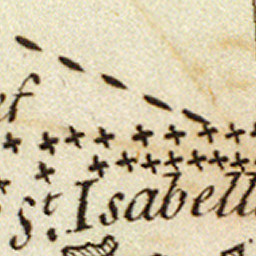 ef
St. Isabella